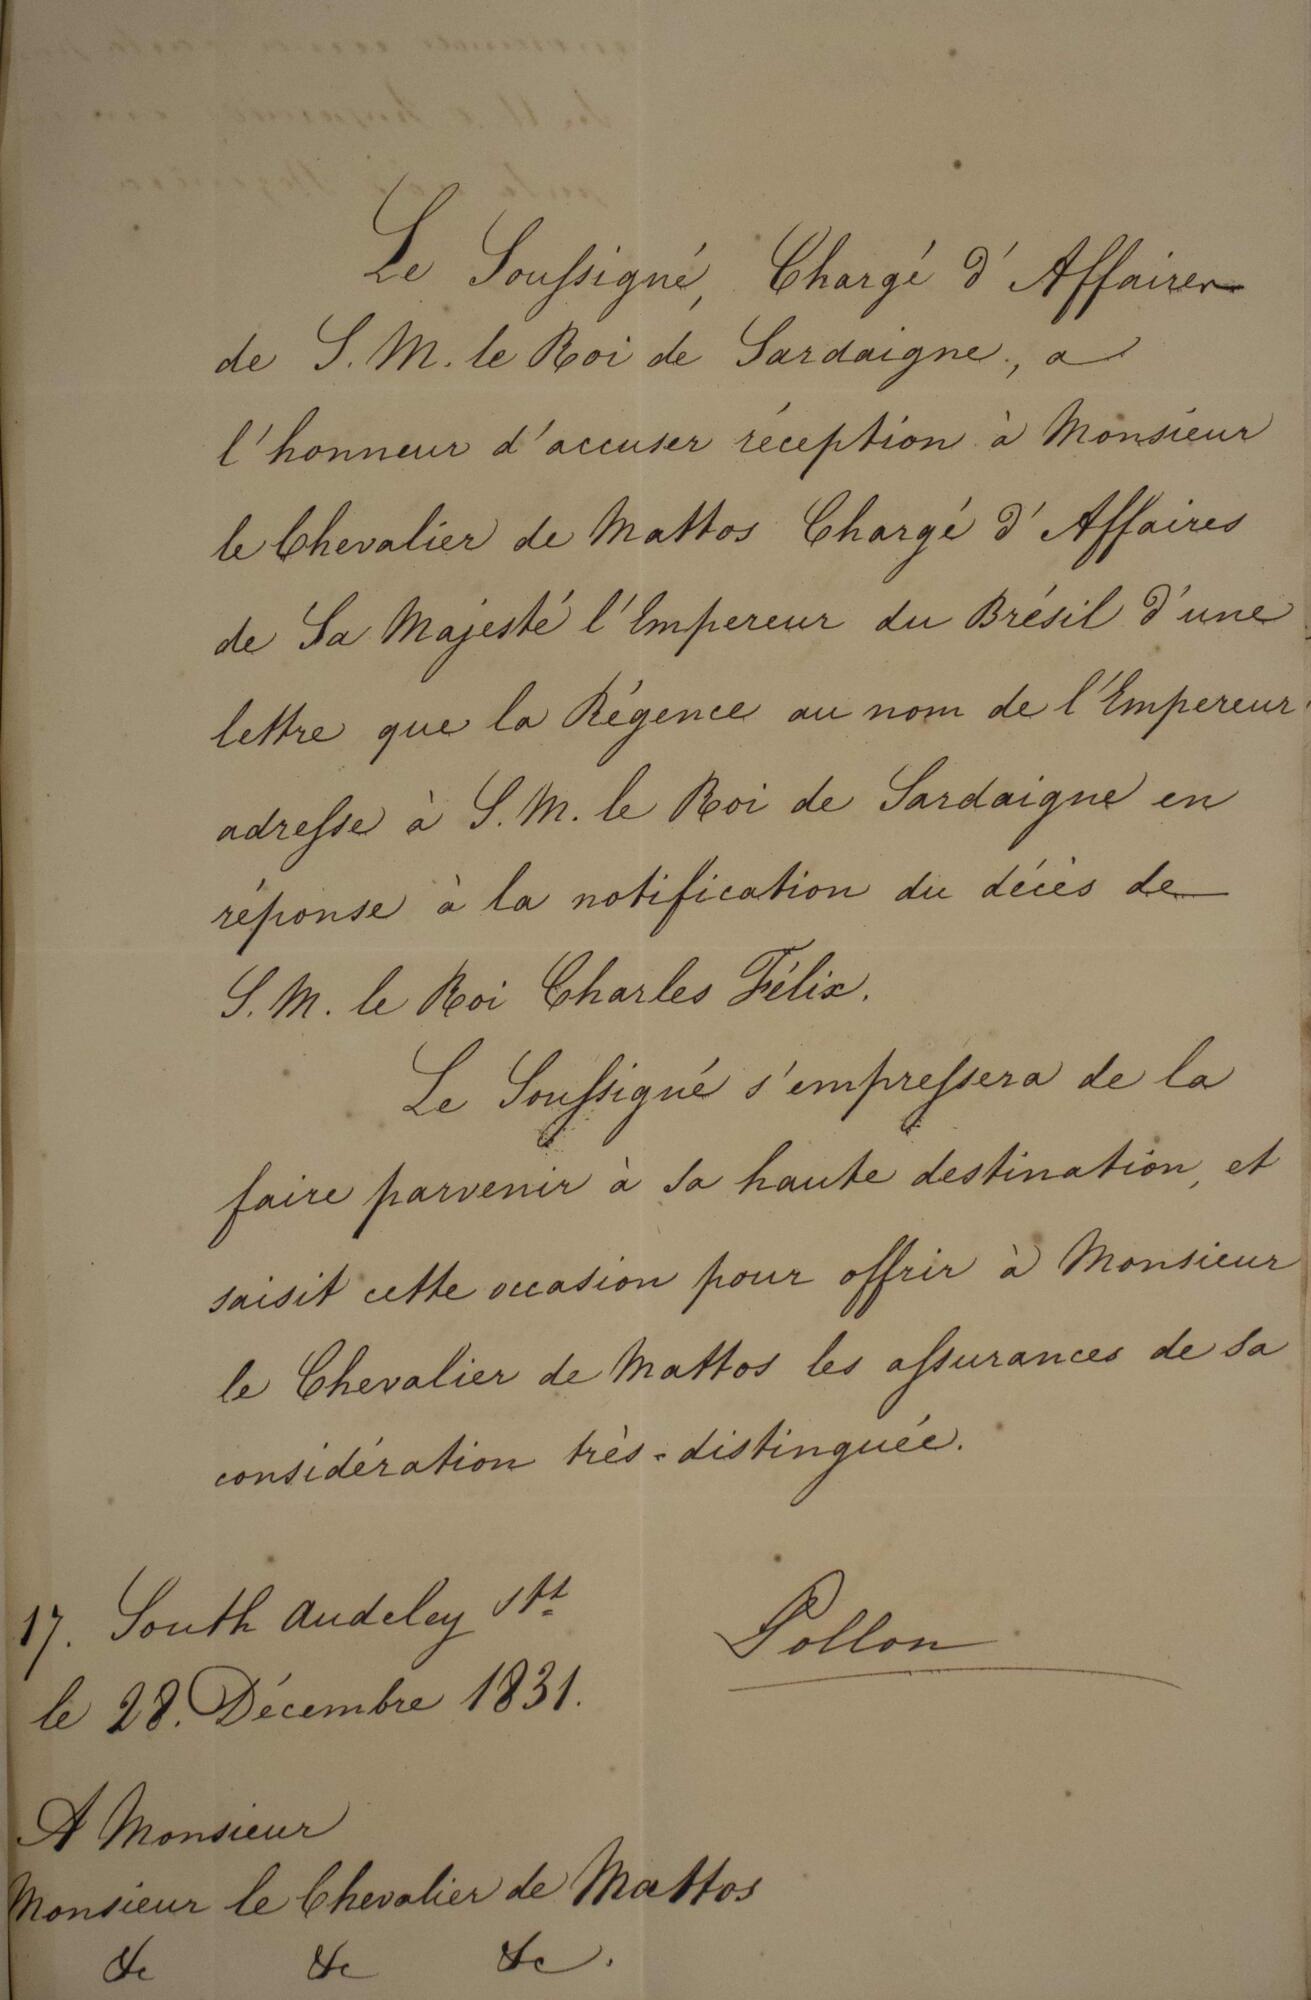 Le Soussigné, Chargé d'Affaires
de S. M. le Roi de Sardaigne, a
l'honneur d'accuser réception à Monsieur
le Chevalier de Mattos Chargé d'Affaires
de Sa Majesté l'Empereur du Brésil d'une
lettre que la Régence au nom de l'Empereur
adresse à S. M. le Roi de Sardaigne en
réponse à la notification du décès de
S. M. le Roi Charles Félix.
Le Soussigné s'empressera de la
faire parvenir à sa haute destination, et
saisit cette occasion pour offrir à Monsieur
le Chevalier de Mattos les assurances de sa
considération très-distinguée.
17. South Audeley Stt
Pollon
le 28. Décembre 1831.
A Monsieur
Monsieur le Chevalier de Mattos
&c &c &c.